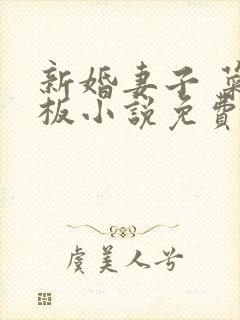 新婚妻子 葉
板小説免費
虞美人兮